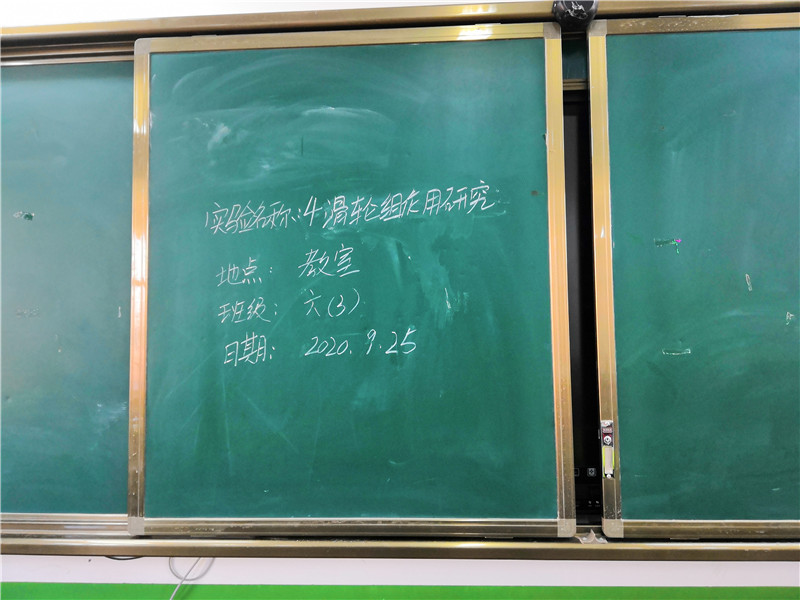 实验名称:4滑轮组作用研究
地点: 教室
班级: 六(3)
日期: 2020.9.25